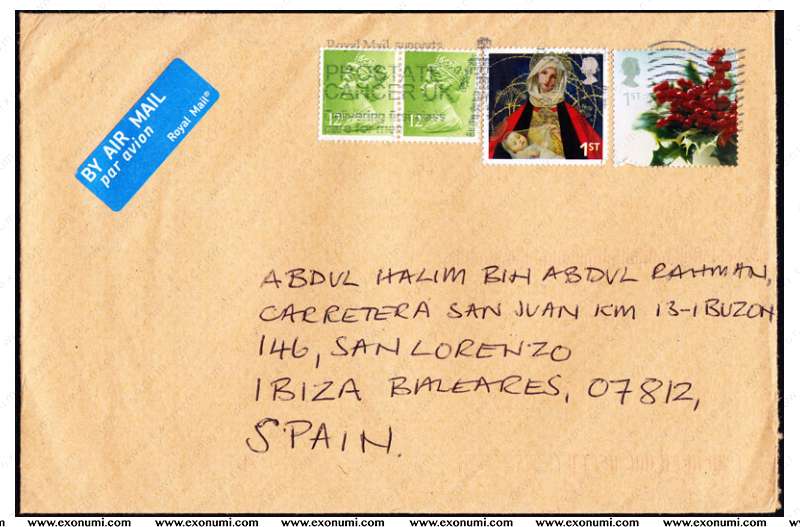 Royal Mail supports
PROSTATE
CANCER UK
Delivering first class
care for men
12
12
1ST
1ST
BY AIR MAIL
par avion
Royal Mail®
ABDUL HALIM BIN ABDUL RAHMAN,
CARRETERA SAN JUAN KM 13-1 BUZON
146, SAN LORENZO
IBIZA BALEARES, 07812,
SPAIN.
www.exonumi.com www.exonumi.com www.exonumi.com www.exonumi.com www.exonumi.com www.exonumi.com